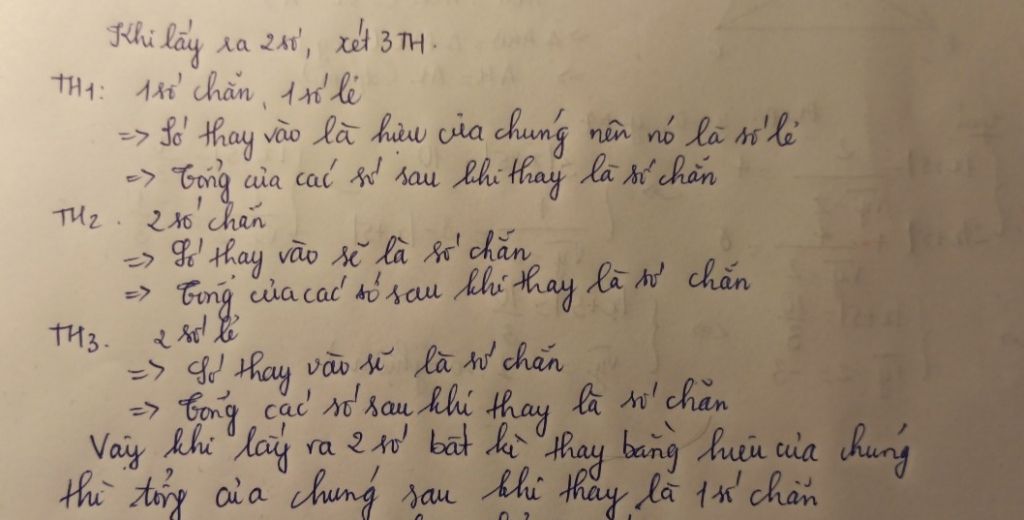 Khi lấy ra 2 số, xét 3 TH.
TH1: 1 số chẵn, 1 số lẻ
=> Số thay vào là hiệu của chúng nên nó là số lẻ
=> Tổng của các số sau khi thay là số chẵn
TH2. 2 số chẵn
=> Số thay vào sẽ là số chẵn
=> Tổng của các số sau khi thay là số chẵn
TH3. 2 số lẻ
=> Số thay vào sẽ là số chẵn
=> Tổng các số sau khi thay là số chẵn
Vậy khi lấy ra 2 số bất kì thay bằng hiệu của chúng
thì tổng của chúng sau khi thay là 1 số chẵn